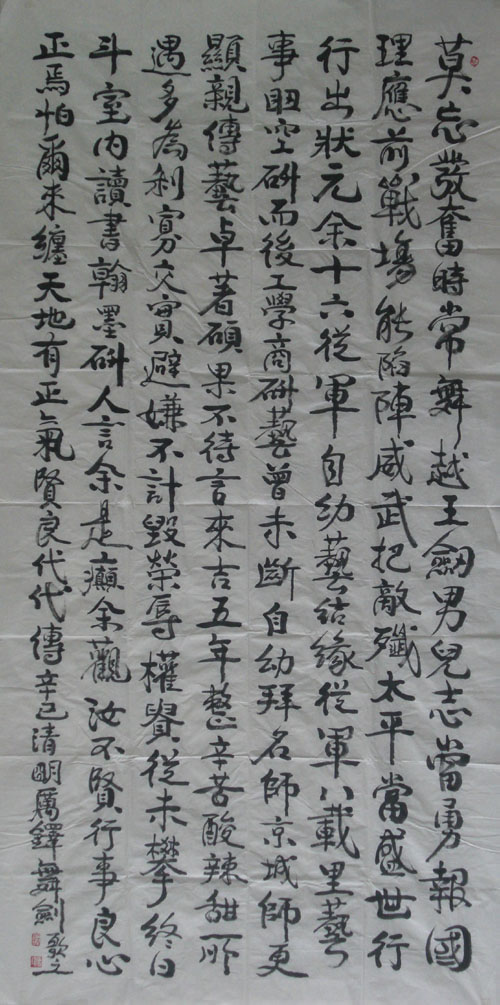 莫忘發奮時常舞越王劍男兒志當勇報國
理應前戰場能陷陣威武把敵殲太平當盛世行
行出狀元余十六從軍自幼藝结缘從軍八載里藝
事眈空研而後工學商研藝曾未斷自幼拜名師京城師更
顯親傳藝卓著碩果不待言來吉五年整辛苦酸辣甜所
遇多為利寡交實避嫌不計毀榮辱權貴從未攀終日
斗室内讀書翰墨研人言余是癲余觀汝不賢行事良心
正焉怕爾来纏天地有正氣賢良代代傳辛巳清明厲鐸舞劍歌之